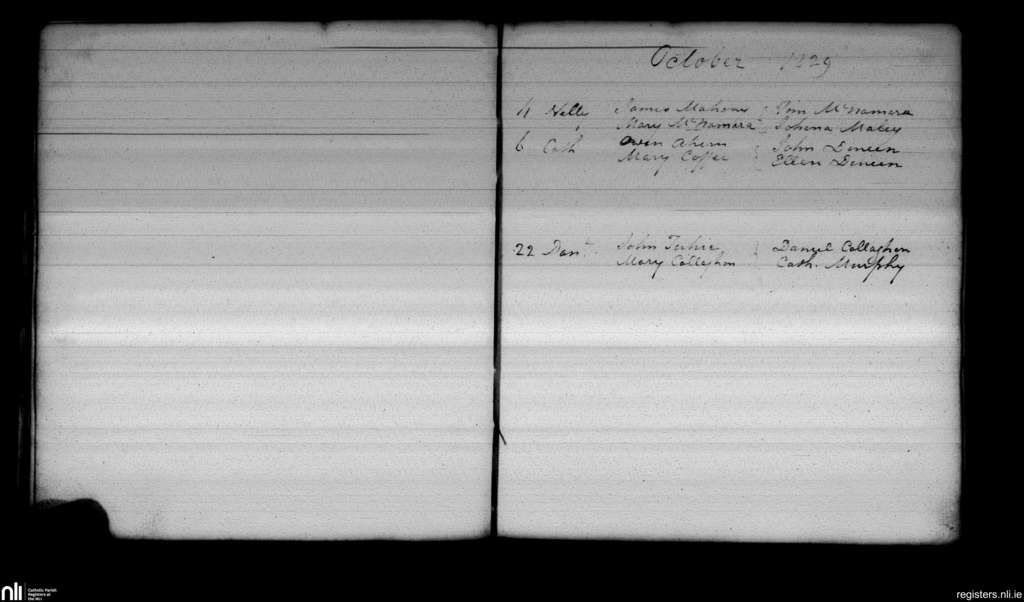 October 1829
4 Nelle James Mahony Tim McNamara
Mary McNamara Johena Maley
6 Cath Owin Ahern John Dineen
Mary Coffee Ellen Dineen
22 Danl John Tuhie Danyel Callaghan
Mary Callaghan Cath. Murphy
nli
Catholic Parish
Registers at
the NLI
registers.nli.ie